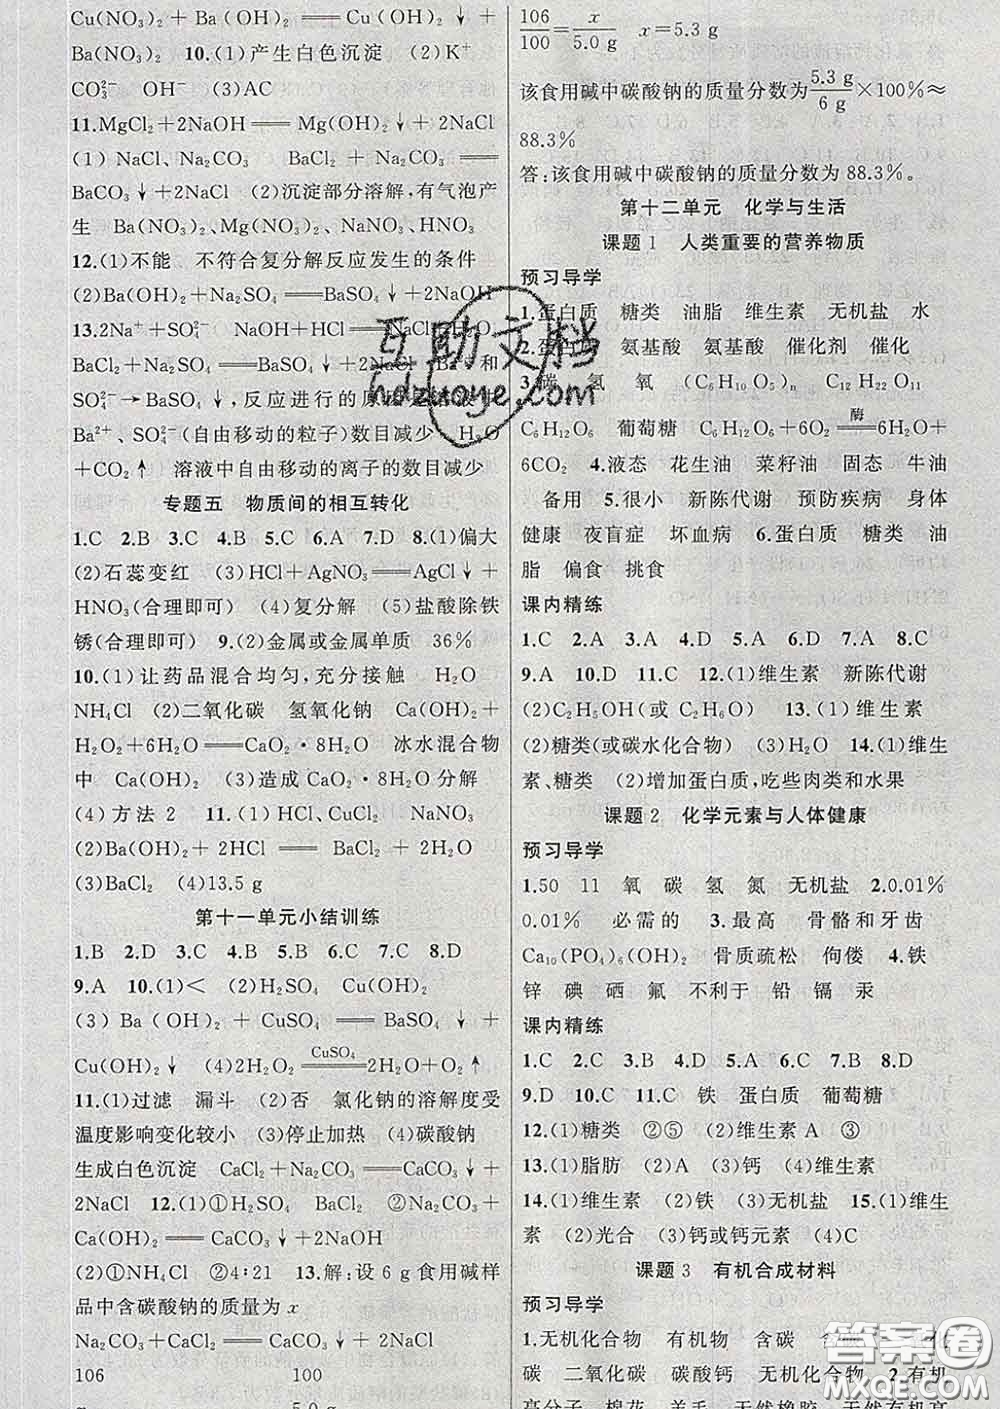 Cu(NO₃)₂+Ba(OH)₂══Cu(OH)₂↓+
Ba(NO₃)₂  10.(1)产生白色沉淀  (2)K⁺
CO₃²⁻  OH⁻  (3)AC
11.MgCl₂+2NaOH══Mg(OH)₂↓+2NaCl
(1)NaCl、Na₂CO₃  BaCl₂+Na₂CO₃══
BaCO₃↓+2NaCl  (2)沉淀部分溶解,有气泡产
生  Ba(NO₃)₂、Mg(NO₃)₂、NaNO₃、HNO₃
12.(1)不能  不符合复分解反应发生的条件
(2)Ba(OH)₂+Na₂SO₄══BaSO₄↓+2NaOH
13.2Na⁺+SO₄²⁻  NaOH+HCl══NaCl+H₂O
BaCl₂+Na₂SO₄══BaSO₄↓+2NaCl  Ba²⁺和
SO₄²⁻→BaSO₄↓,反应进行的
Ba²⁺、SO₄²⁻(自由移动的粒子)数目减少  H₂O
+CO₂↑  溶液中自由移动的离子的数目减少
专题五  物质间的相互转化
1.C  2.B  3.C  4.B  5.C  6.A  7.D  8.(1)偏大
(2)石蕊变红  (3)HCl+AgNO₃══AgCl↓+
HNO₃(合理即可)  (4)复分解  (5)盐酸除铁
锈(合理即可)  9.(2)金属或金属单质  36%
10.(1)让药品混合均匀,充分接触  H₂O
NH₄Cl  (2)二氧化碳  氢氧化钠  Ca(OH)₂+
H₂O₂+6H₂O══CaO₂·8H₂O  冰水混合物
中  Ca(OH)₂  (3)造成CaO₂·8H₂O分解
(4)方法2  11.(1)HCl、CuCl₂  NaNO₃
(2)Ba(OH)₂+2HCl══BaCl₂+2H₂O
(3)BaCl₂  (4)13.5 g
第十一单元小结训练
1.B  2.D  3.C  4.B  5.B  6.C  7.C  8.D
9.A  10.(1)<  (2)H₂SO₄  Cu(OH)₂
(3)Ba(OH)₂+CuSO₄══BaSO₄↓+
Cu(OH)₂↓  (4)2H₂O₂ ══CuSO₄══ 2H₂O+O₂↑
11.(1)过滤  漏斗  (2)否  氯化钠的溶解度受
温度影响变化较小  (3)停止加热  (4)碳酸钠
生成白色沉淀  CaCl₂+Na₂CO₃══CaCO₃↓+
2NaCl  12.(1)①H₂SO₄  BaCl₂  ②Na₂CO₃+
Ca(OH)₂══CaCO₃↓+2NaOH
(2)①NH₄Cl  ②4:21  13.解:设6 g食用碱样
品中含碳酸钠的质量为x
Na₂CO₃+CaCl₂══CaCO₃↓+2NaCl
106  100
x  5.0 g
106/100=x/5.0 g  x=5.3 g
该食用碱中碳酸钠的质量分数为5.3 g/6 g×100%≈
88.3%
答:该食用碱中碳酸钠的质量分数为88.3%。
第十二单元  化学与生活
课题1  人类重要的营养物质
预习导学
1.蛋白质  糖类  油脂  维生素  无机盐  水
2.蛋白质  氨基酸  氨基酸  催化剂  催化
3.碳  氢  氧  (C₆H₁₀O₅)ₙ  C₁₂H₂₂O₁₁
C₆H₁₂O₆  葡萄糖  C₆H₁₂O₆+6O₂ ══酶══ 6H₂O+
6CO₂  4.液态  花生油  菜籽油  固态  牛油
备用  5.很小  新陈代谢  预防疾病  身体
健康  夜盲症  坏血病  6.蛋白质  糖类  油
脂  偏食  挑食
课内精练
1.C  2.A  3.A  4.D  5.A  6.D  7.A  8.C
9.A  10.D  11.C  12.(1)维生素  新陈代谢
(2)C₂H₅OH(或C₂H₆O)  13.(1)维生素
(2)糖类(或碳水化合物)  (3)H₂O  14.(1)维生
素、糖类  (2)增加蛋白质,吃些肉类和水果
课题2  化学元素与人体健康
预习导学
1.50  11  氧  碳  氢  氮  无机盐  2.0.01%
0.01%  必需的  3.最高  骨骼和牙齿
Ca₁₀(PO₄)₆(OH)₂  骨质疏松  佝偻  4.铁
锌  碘  硒  氟  不利于  铅  镉  汞
课内精练
1.C  2.C  3.B  4.D  5.A  6.C  7.B  8.D
9.D  10.C  11.C  铁  蛋白质  葡萄糖
12.(1)糖类  ②⑤  (2)维生素A  ③
13.(1)脂肪  (2)A  (3)钙  (4)维生素
14.(1)维生素  (2)铁  (3)无机盐  15.(1)维生
素  (2)光合  (3)钙或钙元素  (4)C
课题3  有机合成材料
预习导学
1.无机化合物  有机物  含碳
碳  二氧化碳  碳酸钙  无机化合物  2.有机
高分子  棉花  羊毛  天然橡胶  天然有机高
互助文档
hdzuoye.com
答案圈
MXQE.COM